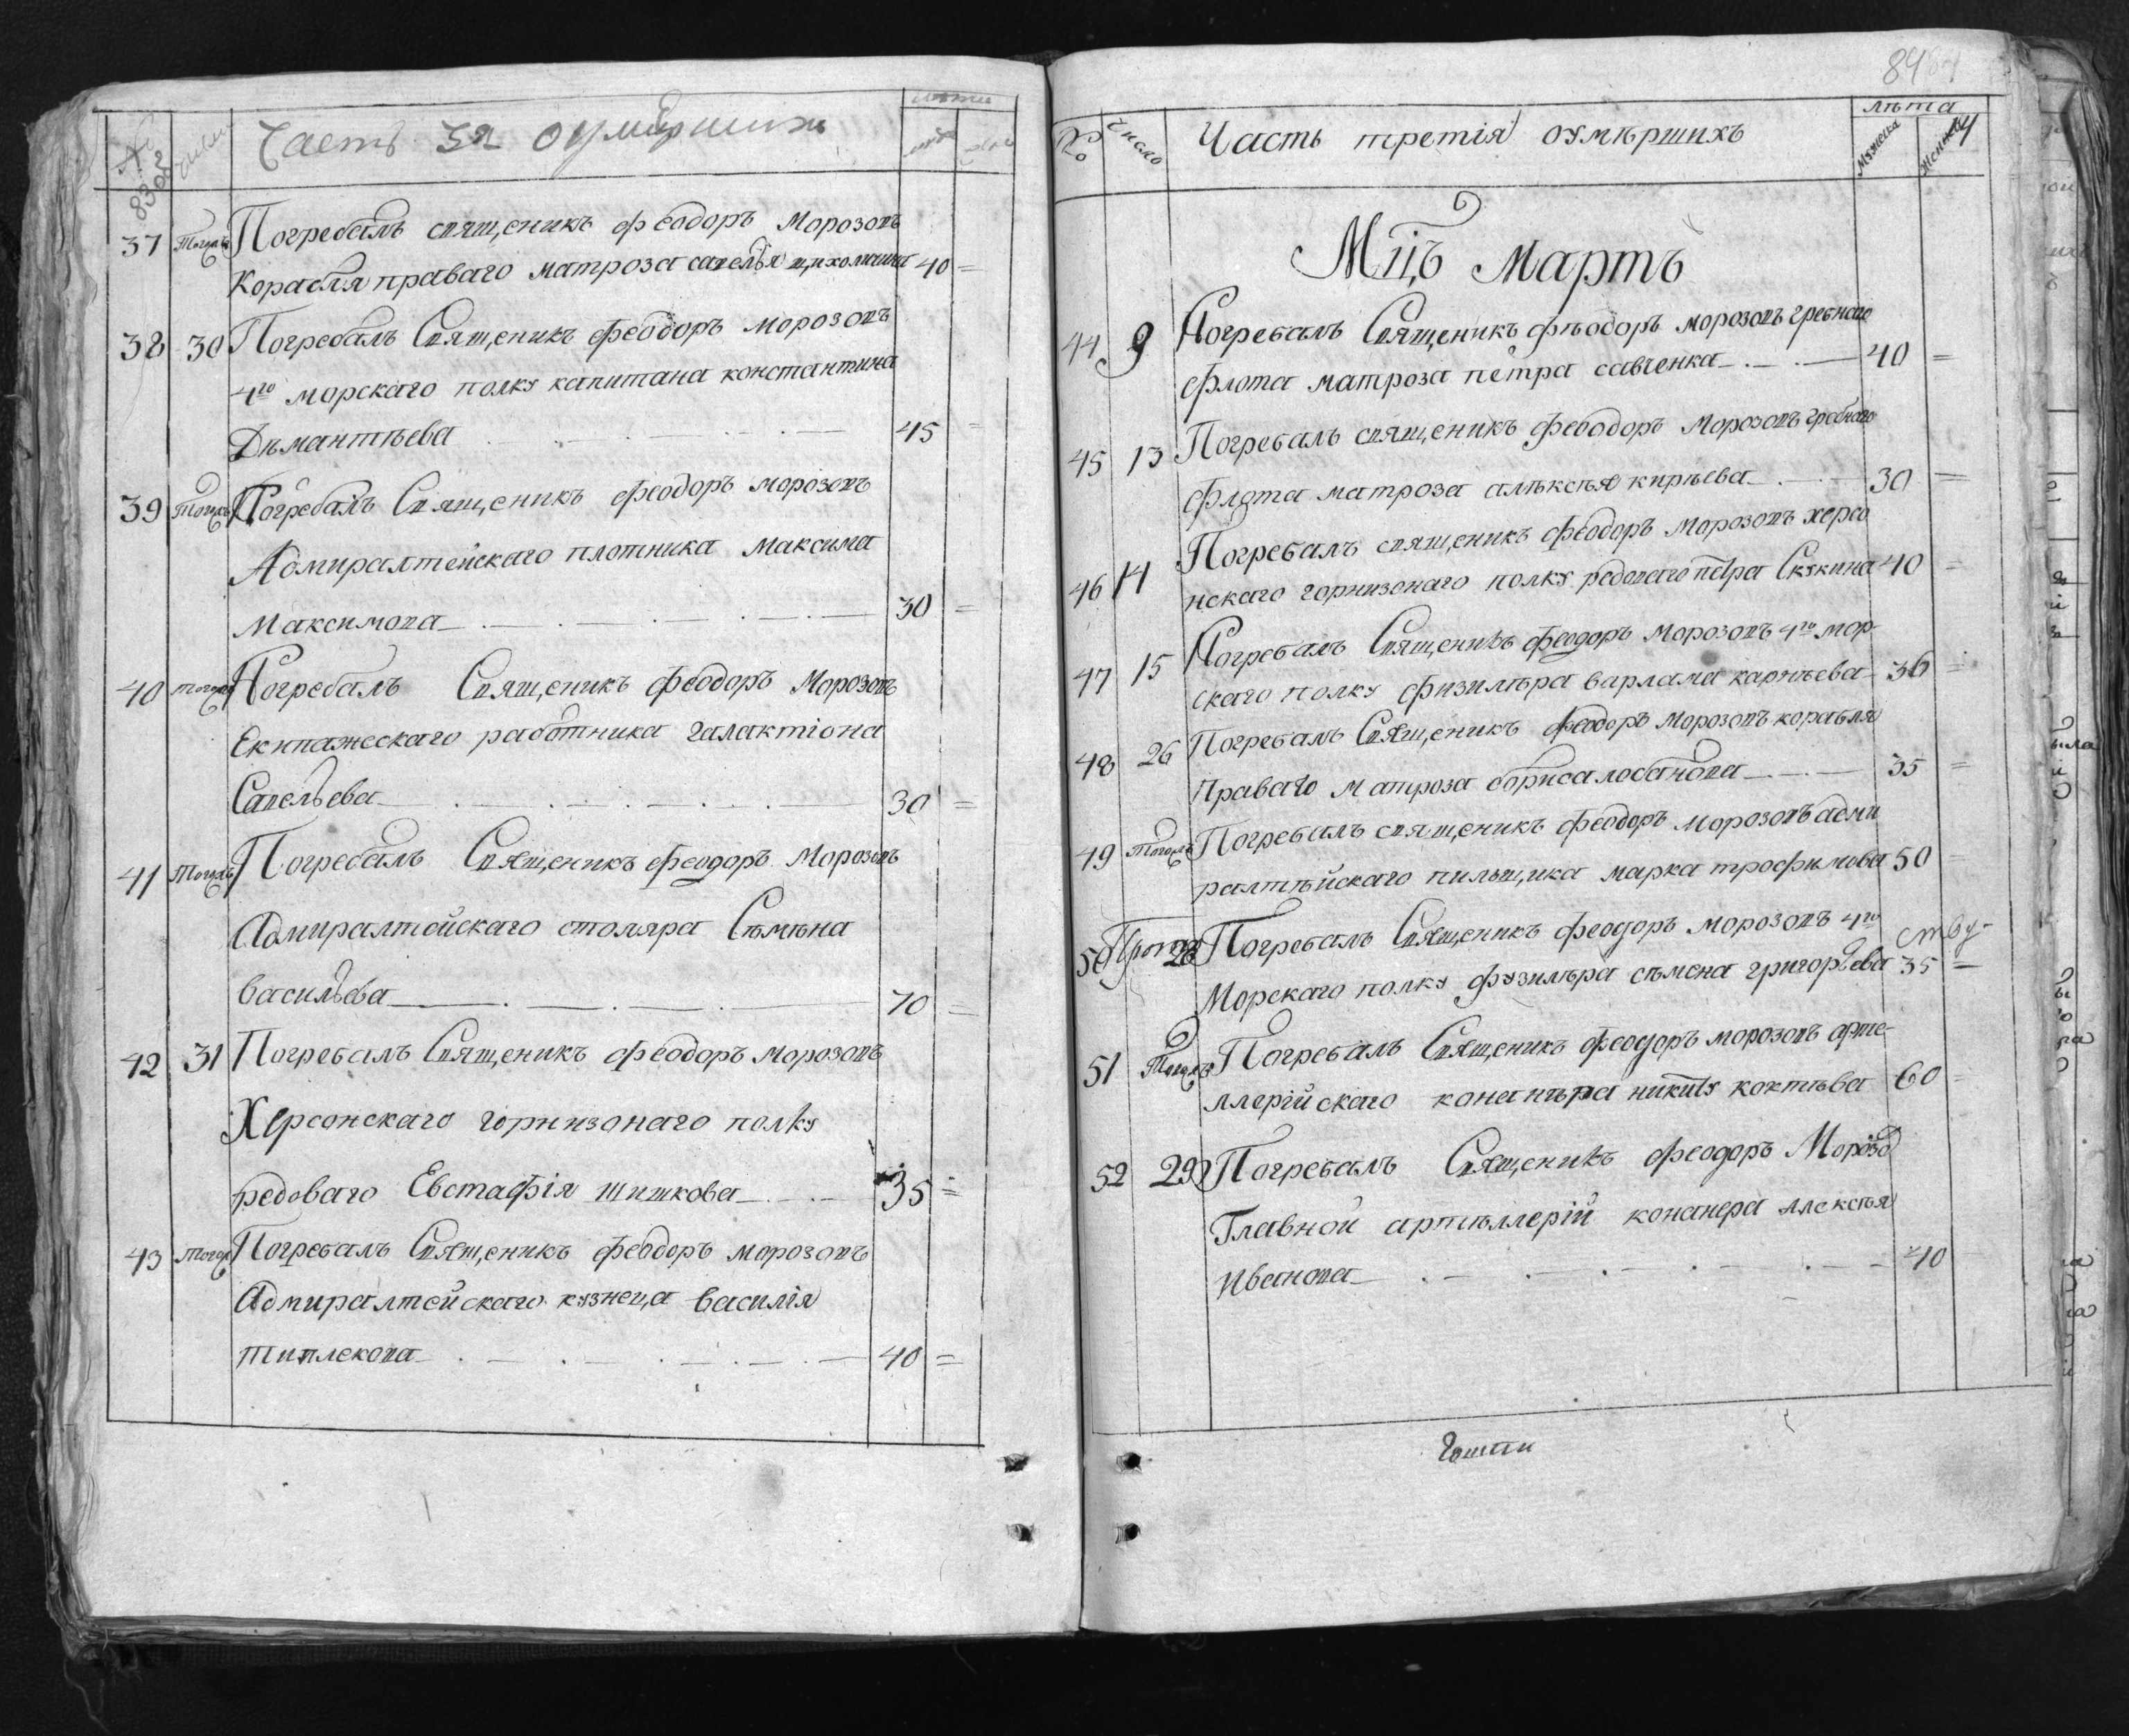 Часть 3я оумершихъ
лѣта
37 Тогожъ Погребалъ священикъ феодоръ Морозовъ
Корабля праваго матроза савелья 40 =
38 30 Погребалъ Священикъ феодоръ морозовъ
4го морскаго полку капитана константина
Дѣмантьева 45 =
39 Тогожъ Погребалъ Священикъ феодоръ морозовъ
Адмиралтейскаго плотника максима
Максимова 30 =
40 тогожъ Погребалъ Священикъ феодоръ Морозовъ
Екипажескаго работника галактіона
Савельева 30 =
41 Тогожъ Погребалъ Священикъ феодоръ Морозовъ
Адмиралтейскаго столяра Сѣмѣна
васильева 70 =
42 31 Погребалъ Священикъ феодоръ морозовъ
Херсонскаго горнизонаго полку
редоваго Евстафія шишкова 35 =
43 тогож Погребалъ Священикъ феодоръ морозовъ
Адмиралтейскаго кузнеца василія
типлекова 40 =
84
№ число Часть третія оумѣршихъ лѣта
мужеска женска
Мцъ Мартъ
44 9 Погребалъ Священикъ фѣодоръ морозовъ гребнаго
флота матроза петра савченка 40 =
45 13 Погребалъ священикъ феодоръ Морозовъ гребнаго
флота матроза алѣксѣя кирѣева 30 =
46 14 Погребалъ священикъ феодоръ Морозовъ херсо
нскаго горнизонаго полку редоваго петра Скукина 40 =
47 15 Погребалъ Священикъ феодоръ Морозовъ 4го мор-
скаго полку физилѣра варлама карнѣева 36 =
48 26 Погребалъ Священикъ феодоръ Морозовъ корабля
Праваго матроза бориса лобанова 35 =
49 Тогожъ Погребалъ священикъ феодоръ морозовъ адми
ралтѣйскаго пильщика марка трофимова 50 =
50 28 Погребалъ Священикъ феодоръ морозовъ 4го
Морскаго полку фузилѣра сѣмена григорьева 35 =
51 Тогожъ Погребалъ Священикъ феодоръ морозовъ арте-
ллерійскаго конанѣра никиту коктѣва 60 =
52 29 Погребалъ Священикъ феодоръ Морозо
Главной артѣллерій конанера алексѣя
Иванова 40